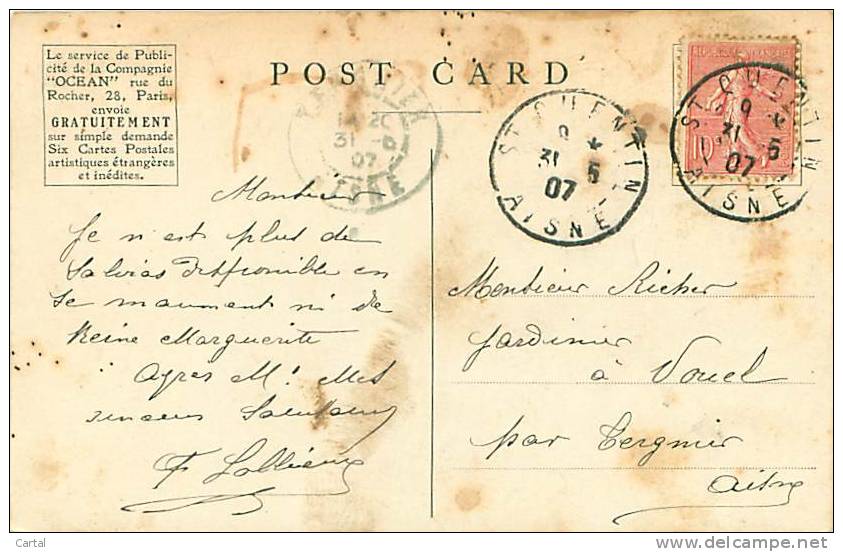 Le service de Publi-
cité de la Compagnie
"OCEAN" rue du
Rocher, 28, Paris,
envoie
GRATUITEMENT
sur simple demande
Six Cartes Postales
artistiques étrangères
et inédites.
POST CARD
TERGNIER
31
07
AISNE
ST QUENTIN
9
31 5
07
AISNE
REPUBLIQUE FRANCAISE
10
ST QUENTIN
9
31 5
07
AISNE
Monsieur
Je n est plus de
Salvias Disponible en
se maument ni de
Reine Marguerite
Agres M. Mes
F Lallieux
Monsieur Richer
Jardinier
à Vouel
par Tergnier
Aisne
Cartal
delcampe.net